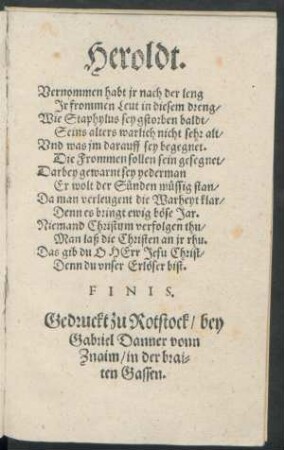 Heroldt.
Vernommen habt jr nach der leng
Jr frommen Leut in diesem dreng/
Wie Staphylus sey gstorben baldt/
Seins alters warlich nicht sehr alt/
Vnd was jm darauff sey begegnet.
Die Frommen sollen sein gesegnet/
Darbey gewarnt sey yederman
Er wolt der Sünden müssig stan/
Da man verleugent die Warheyt klar/
Denn es bringt ewig böse Jar.
Niemand Christum verfolgen thu/
Man laß die Christen an jr rhu.
Das gib du O HErr Jesu Christ/
Denn du vnser Erlöser bist.
FINIS.
Gedruckt zu Rotstock/ bey
Gabriel Danner vonn
Znaim/ in der brai-
ten Gassen.